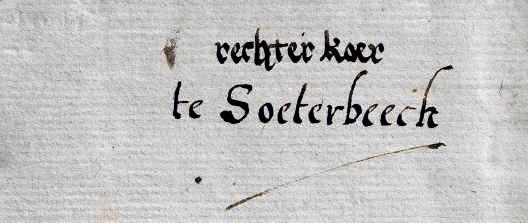 rechter koer
te Soeterbeeck